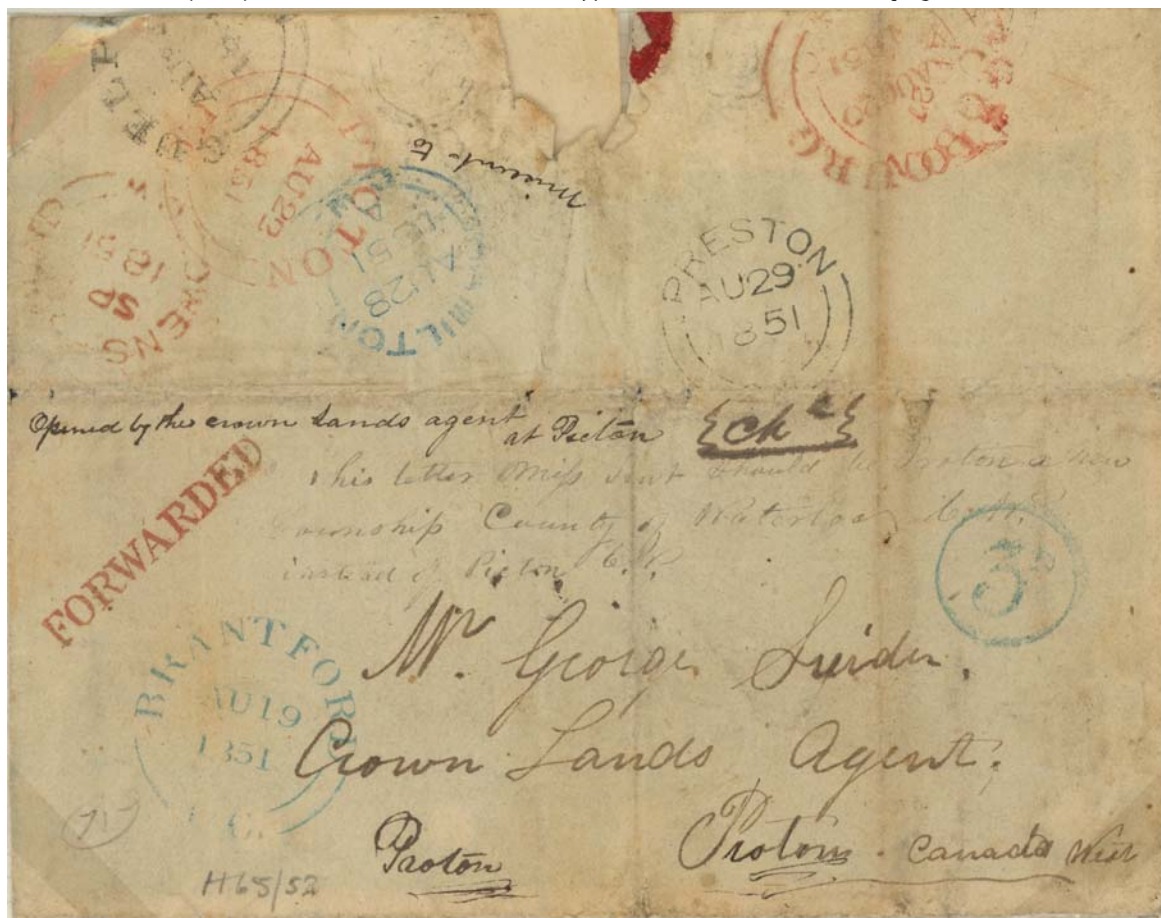 GUELPH
AU
COBOURG
AU 21
AU 20
1851
PICTON
AU 22
1851
Missent to
HAMILTON
AU 28
1851
PRESTON
AU 29
1851
OWENS
SP
1851
Opened by the crown Lands agent at Picton
This letter Miss Sent should be Proton a new
Township County of Waterloo C.W.
instead of Picton C.W.
FORWARDED
3
BRANTFORD
AU 19
1851
Mr. George
Crown Lands Agent.
Proton
Proton. Canada West
H65/52